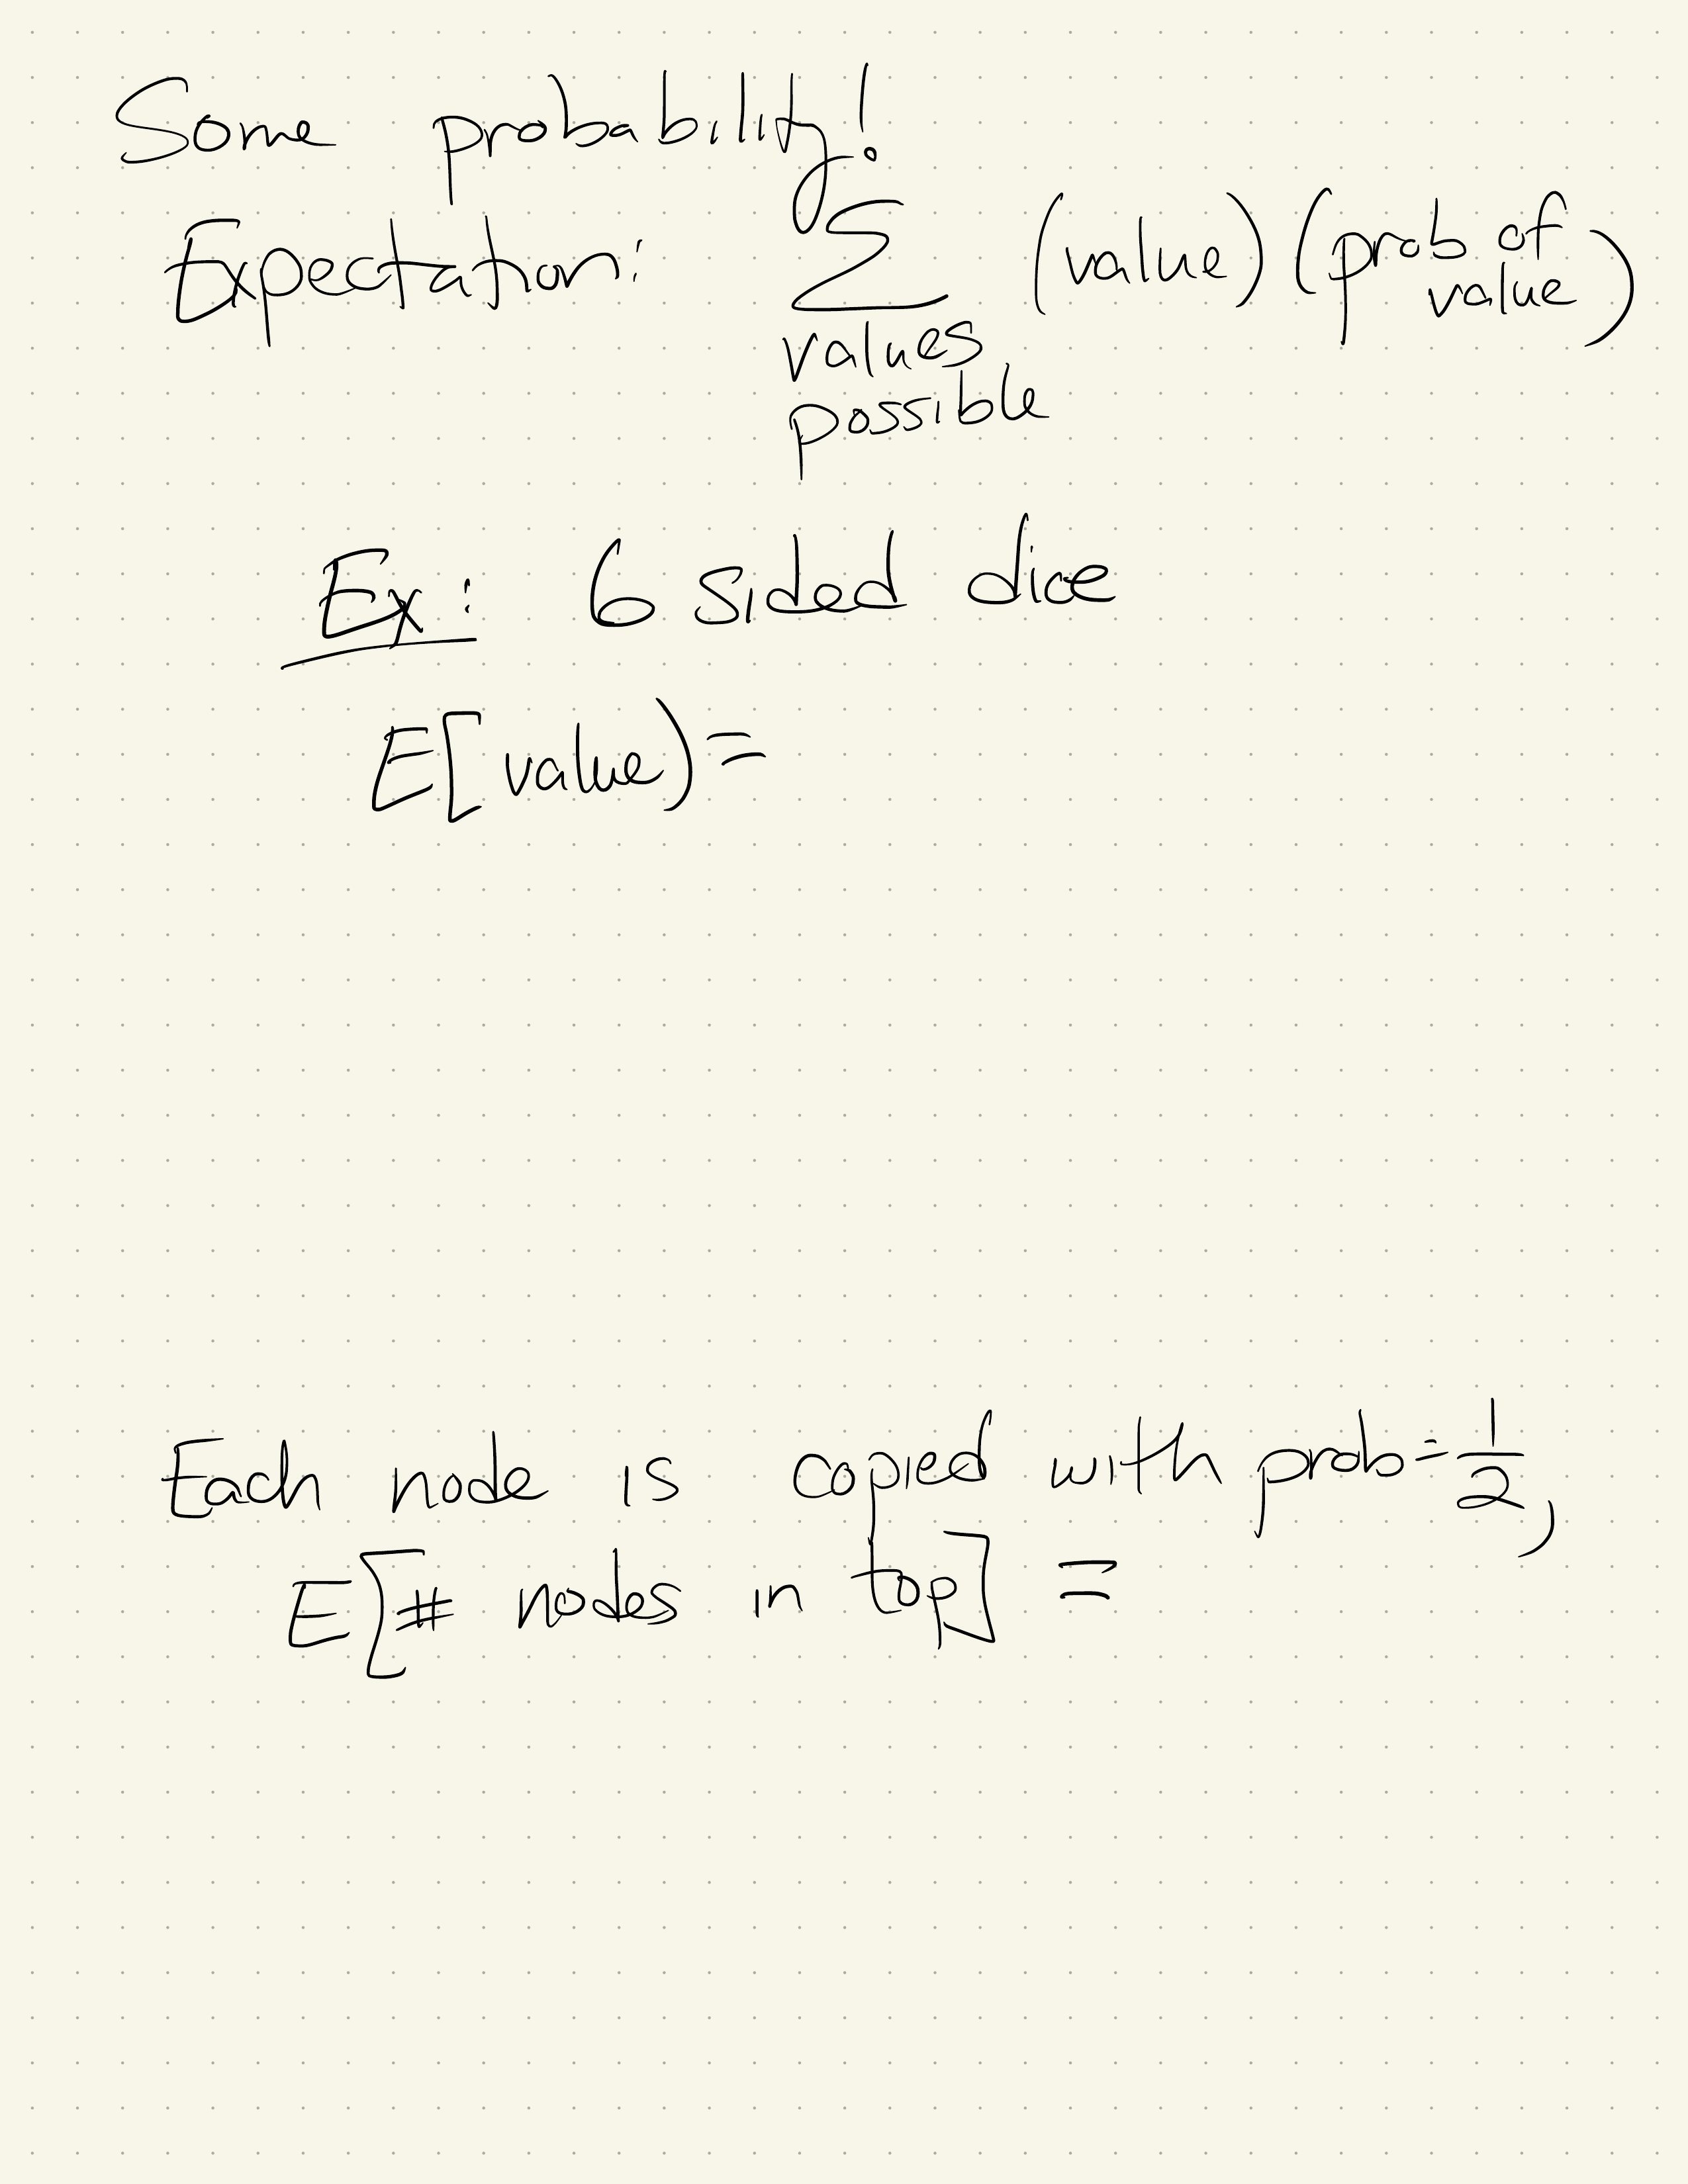 Some probability!
Expectation: ∑ (value) (prob of value)
values possible
Ex: 6 sided dice
E[value) =
Each node is copied with prob = 1/2,
E[# nodes in top] =